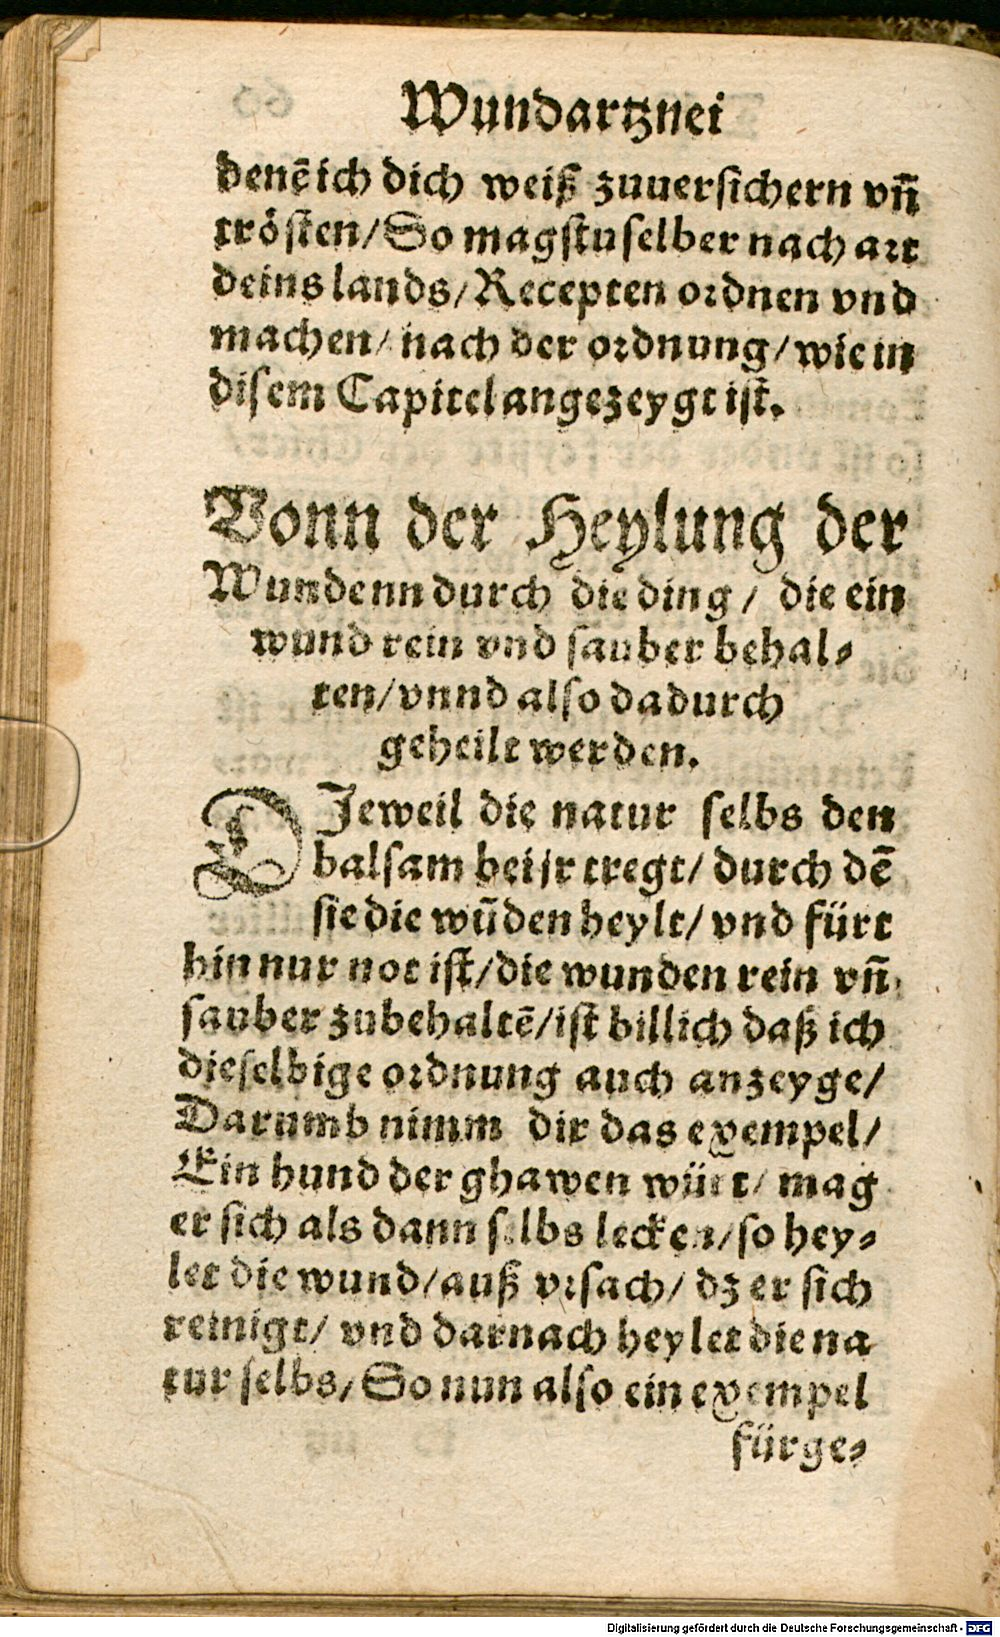 Wundartznei
denē ich dich weiß zuuersichern vn̄
trösten/So magstu selber nach art
deins lands/Recepten ordnen vnd
machen/ nach der ordnung/wie in
disem Capitel angezeygt ist.
Vonn der Heylung der
Wundenn durch die ding/ die ein
wund rein vnd sauber behal⸗
ten/vnnd also dadurch
geheilt werden.
DJeweil die natur selbs den
balsam bei jr tregt/ durch dē
sie die wūden heylt/ vnd fürt
hin nur not ist/die wunden rein vn̄
sauber zubehaltē/ist billich daß ich
dieselbige ordnung auch anzeyge/
Darumb nimm dir das exempel/
Ein hund der ghawen würt/ mag
er sich als dann selbs lecken/so hey⸗
let die wund/auß vrsach/ dz er sich
reinigt/ vnd darnach heylet die na
tur selbs/So nun also ein exempel
fürge⸗
Digitalisierung gefördert durch die Deutsche Forschungsgemeinschaft - DFG